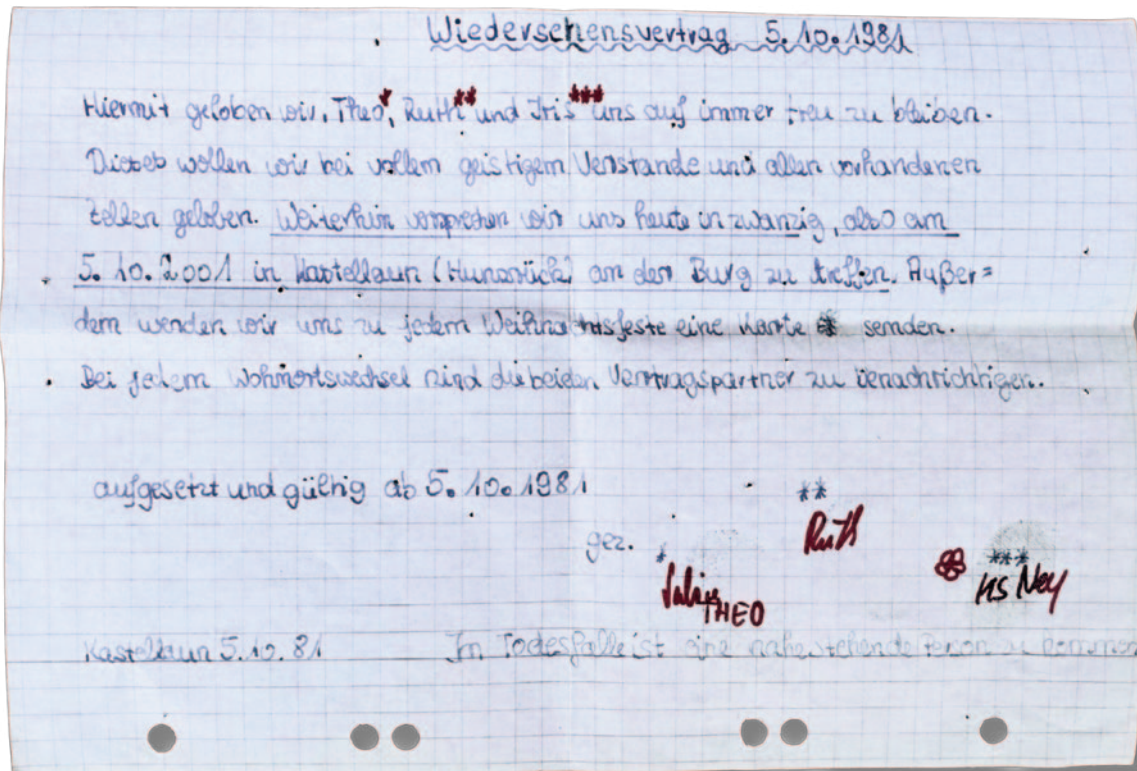 Wiedersehensvertrag 5.10.1981
Hiermit geloben wir, Theo*, Ruth** und Iris*** uns auf immer treu zu bleiben.
Dieses wollen wir bei vollem geistigem Verstande und allen vorhandenen
Zellen geloben. Weiterhin versprechen wir uns heute in zwanzig, also am
5.10.2001 in Kastellaun (Hunsrück) an der Burg zu treffen. Außer=
dem werden wir uns zu jedem Weihnachtsfeste eine Karte senden.
Bei jedem Wohnortswechsel sind die beiden Vertragspartner zu benachrichtigen.
aufgesetzt und gültig ab 5.10.1981
gez.
**
Ruth
*
THEO
***
Ney
Kastellaun 5.10.81 Im Todesfalle ist eine nahestehende Person zu kommen